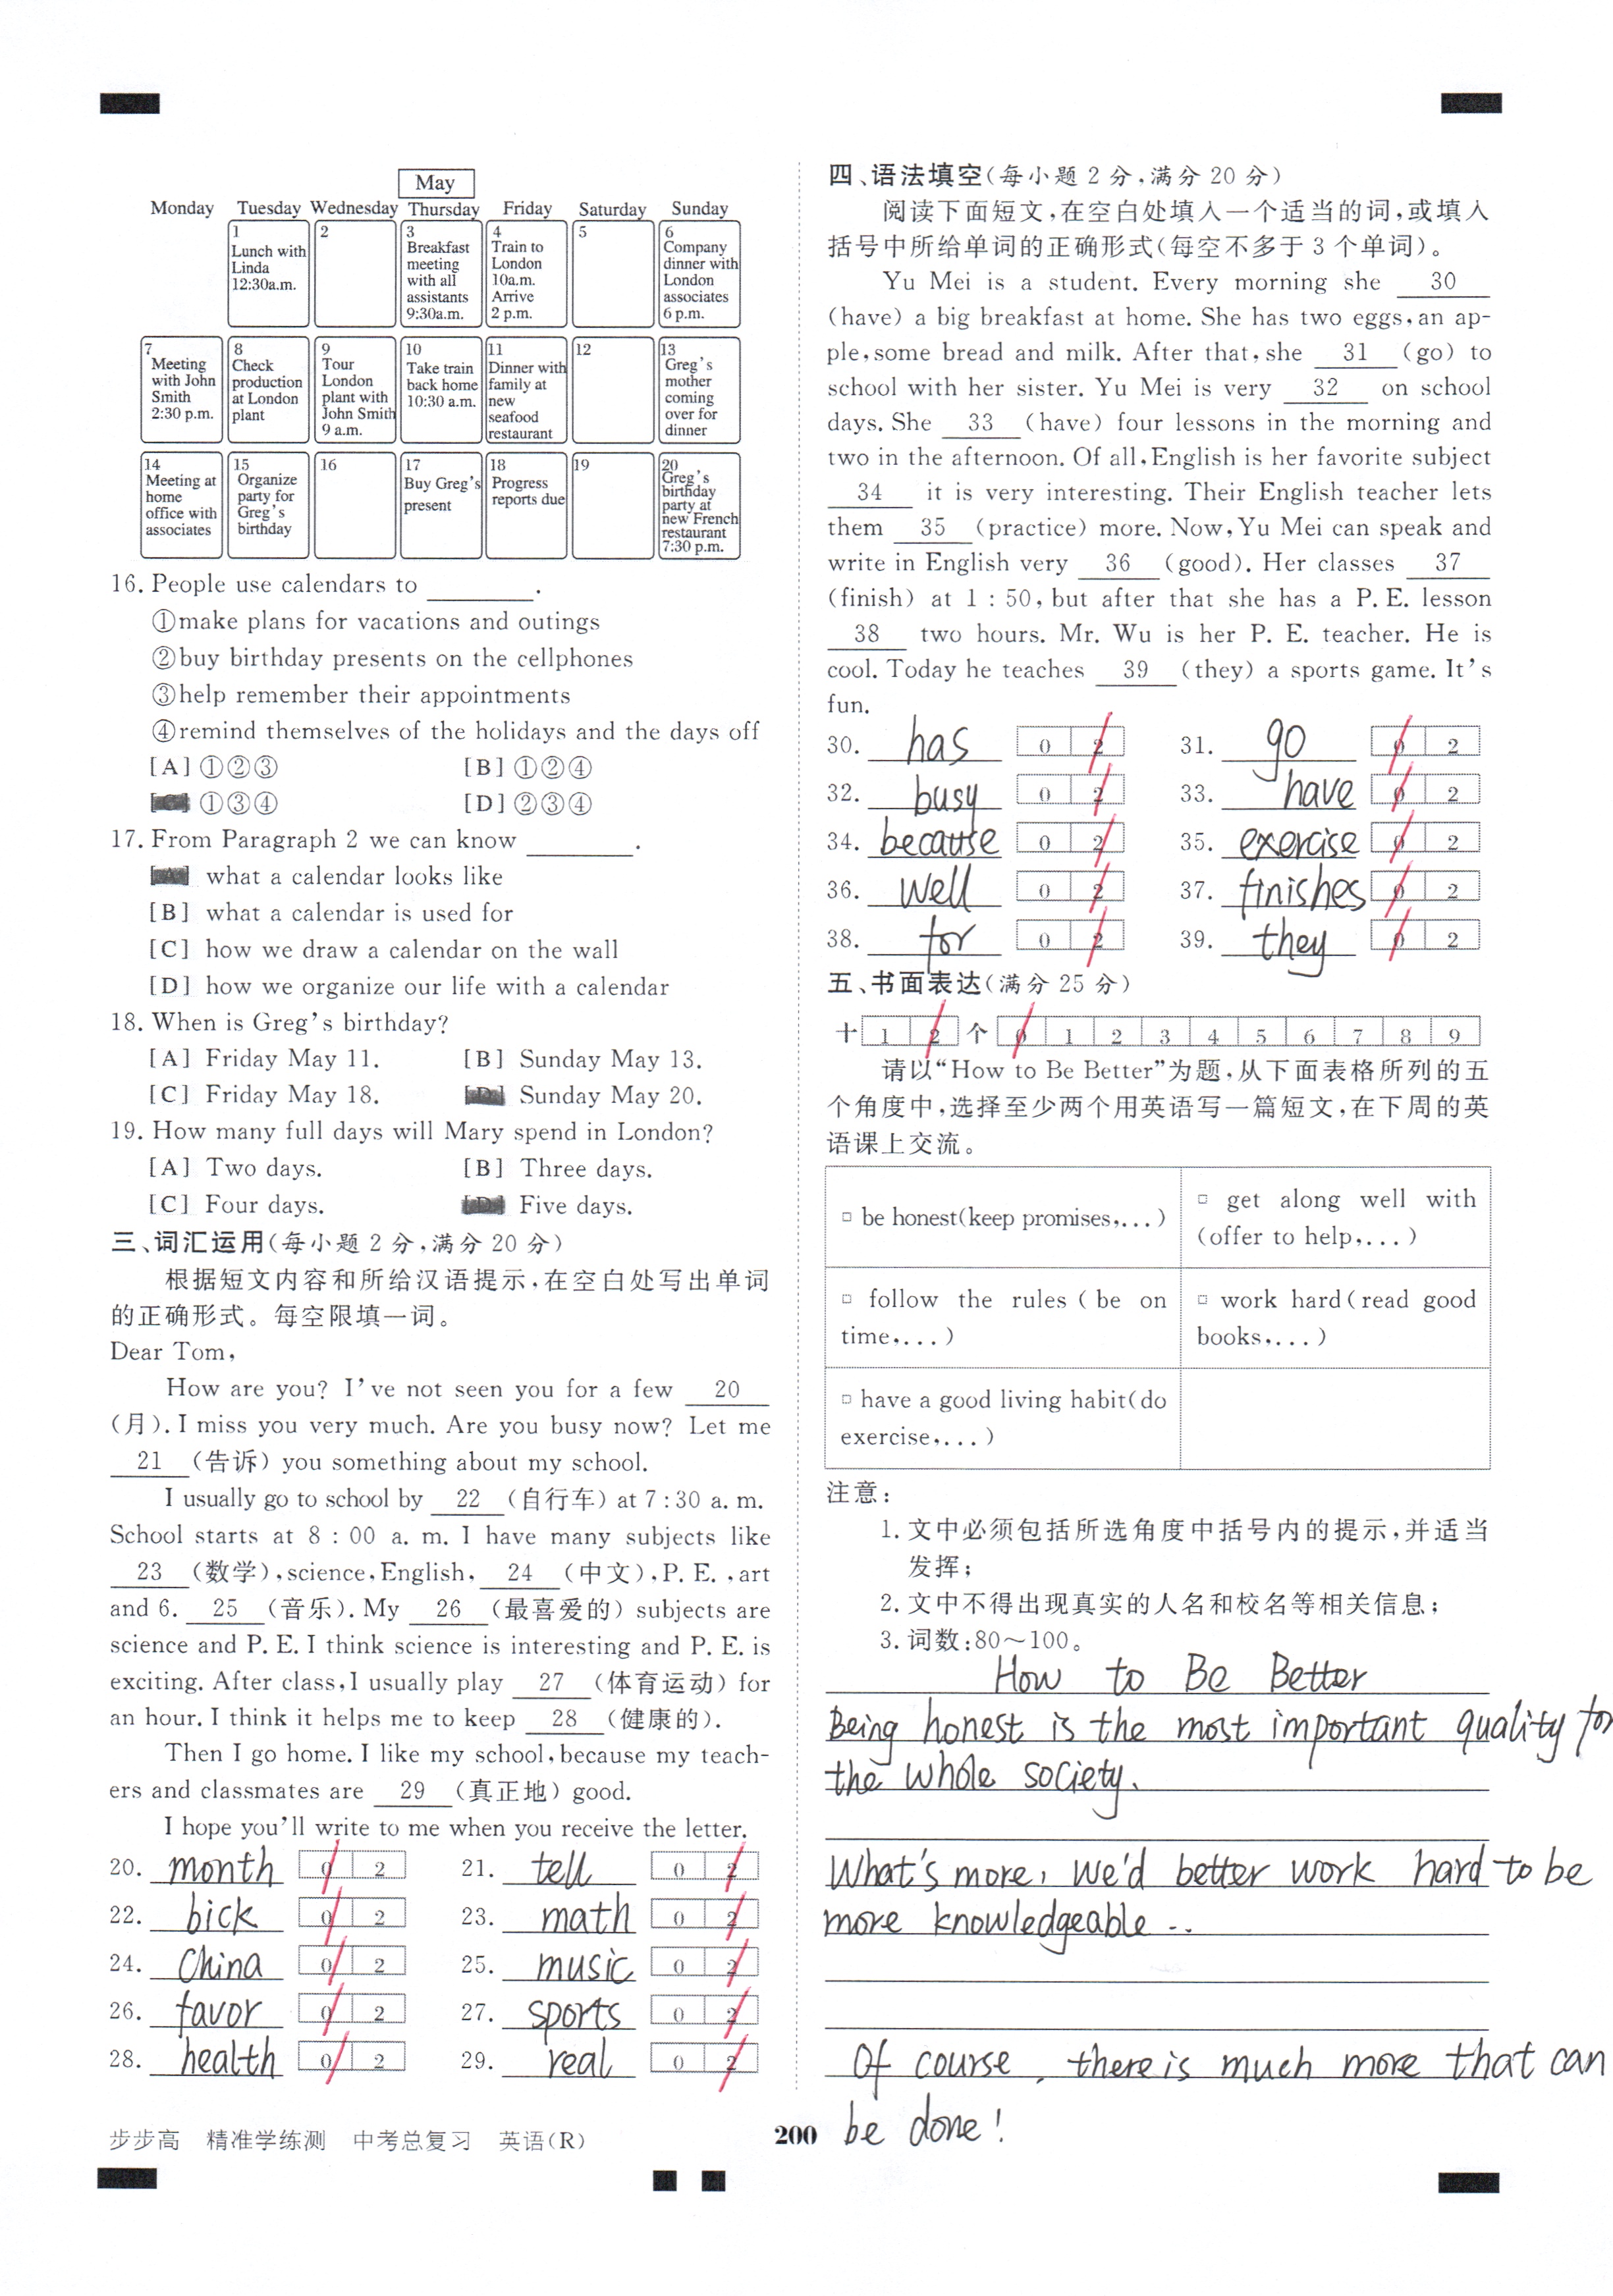 May
Monday Tuesday Wednesday Thursday Friday Saturday Sunday
1 Lunch with Linda 12:30a.m.
2
3 Breakfast meeting with all assistants 9:30a.m.
4 Train to London 10a.m. Arrive 2 p.m.
5
6 Company dinner with London associates 6 p.m.
7 Meeting with John Smith 2:30 p.m.
8 Check production at London plant
9 Tour London plant with John Smith 9 a.m.
10 Take train back home 10:30 a.m.
11 Dinner with family at new seafood restaurant
12
13 Greg's mother coming over for dinner
14 Meeting at home office with associates
15 Organize party for Greg's birthday
16
17 Buy Greg's present
18 Progress reports due
19
20 Greg's birthday party at new French restaurant 7:30 p.m.
16. People use calendars to ________.
①make plans for vacations and outings
②buy birthday presents on the cellphones
③help remember their appointments
④remind themselves of the holidays and the days off
[A] ①②③ [B] ①②④
[C] ①③④ [D] ②③④
17. From Paragraph 2 we can know ________.
[A] what a calendar looks like
[B] what a calendar is used for
[C] how we draw a calendar on the wall
[D] how we organize our life with a calendar
18. When is Greg's birthday?
[A] Friday May 11. [B] Sunday May 13.
[C] Friday May 18. [D] Sunday May 20.
19. How many full days will Mary spend in London?
[A] Two days. [B] Three days.
[C] Four days. [D] Five days.
三、词汇运用(每小题 2 分,满分 20 分)
根据短文内容和所给汉语提示,在空白处写出单词
的正确形式。每空限填一词。
Dear Tom,
How are you? I've not seen you for a few 20
(月). I miss you very much. Are you busy now? Let me
21 (告诉) you something about my school.
I usually go to school by 22 (自行车) at 7:30 a. m.
School starts at 8:00 a. m. I have many subjects like
23 (数学), science, English, 24 (中文), P. E. , art
and 6. 25 (音乐). My 26 (最喜爱的) subjects are
science and P. E. I think science is interesting and P. E. is
exciting. After class, I usually play 27 (体育运动) for
an hour. I think it helps me to keep 28 (健康的).
Then I go home. I like my school, because my teach-
ers and classmates are 29 (真正地) good.
I hope you'll write to me when you receive the letter.
20. month 0 2 21. tell 0 2
22. bick 0 2 23. math 0 2
24. China 0 2 25. music 0 2
26. favor 0 2 27. sports 0 2
28. health 0 2 29. real 0 2
步步高 精准学练测 中考总复习 英语(R)
200
四、语法填空(每小题 2 分,满分 20 分)
阅读下面短文,在空白处填入一个适当的词,或填入
括号中所给单词的正确形式(每空不多于 3 个单词)。
Yu Mei is a student. Every morning she 30
(have) a big breakfast at home. She has two eggs, an ap-
ple, some bread and milk. After that, she 31 (go) to
school with her sister. Yu Mei is very 32 on school
days. She 33 (have) four lessons in the morning and
two in the afternoon. Of all, English is her favorite subject
34 it is very interesting. Their English teacher lets
them 35 (practice) more. Now, Yu Mei can speak and
write in English very 36 (good). Her classes 37
(finish) at 1:50, but after that she has a P. E. lesson
38 two hours. Mr. Wu is her P. E. teacher. He is
cool. Today he teaches 39 (they) a sports game. It's
fun.
30. has 0 2 31. go 0 2
32. busy 0 2 33. have 0 2
34. because 0 2 35. exercise 0 2
36. well 0 2 37. finishes 0 2
38. for 0 2 39. they 0 2
五、书面表达(满分 25 分)
十 1 2 个 0 1 2 3 4 5 6 7 8 9
请以“How to Be Better”为题,从下面表格所列的五
个角度中,选择至少两个用英语写一篇短文,在下周的英
语课上交流。
□ be honest(keep promises,...)
□ get along well with
(offer to help,...)
□ follow the rules (be on
time,...)
□ work hard(read good
books,...)
□ have a good living habit(do
exercise,...)
注意:
1. 文中必须包括所选角度中括号内的提示,并适当
发挥;
2. 文中不得出现真实的人名和校名等相关信息;
3. 词数:80~100。
How to Be Better
Being honest is the most important quality for
the whole society.
What's more, we'd better work hard to be
more knowledgeable ..
Of course, there is much more that can
be done!